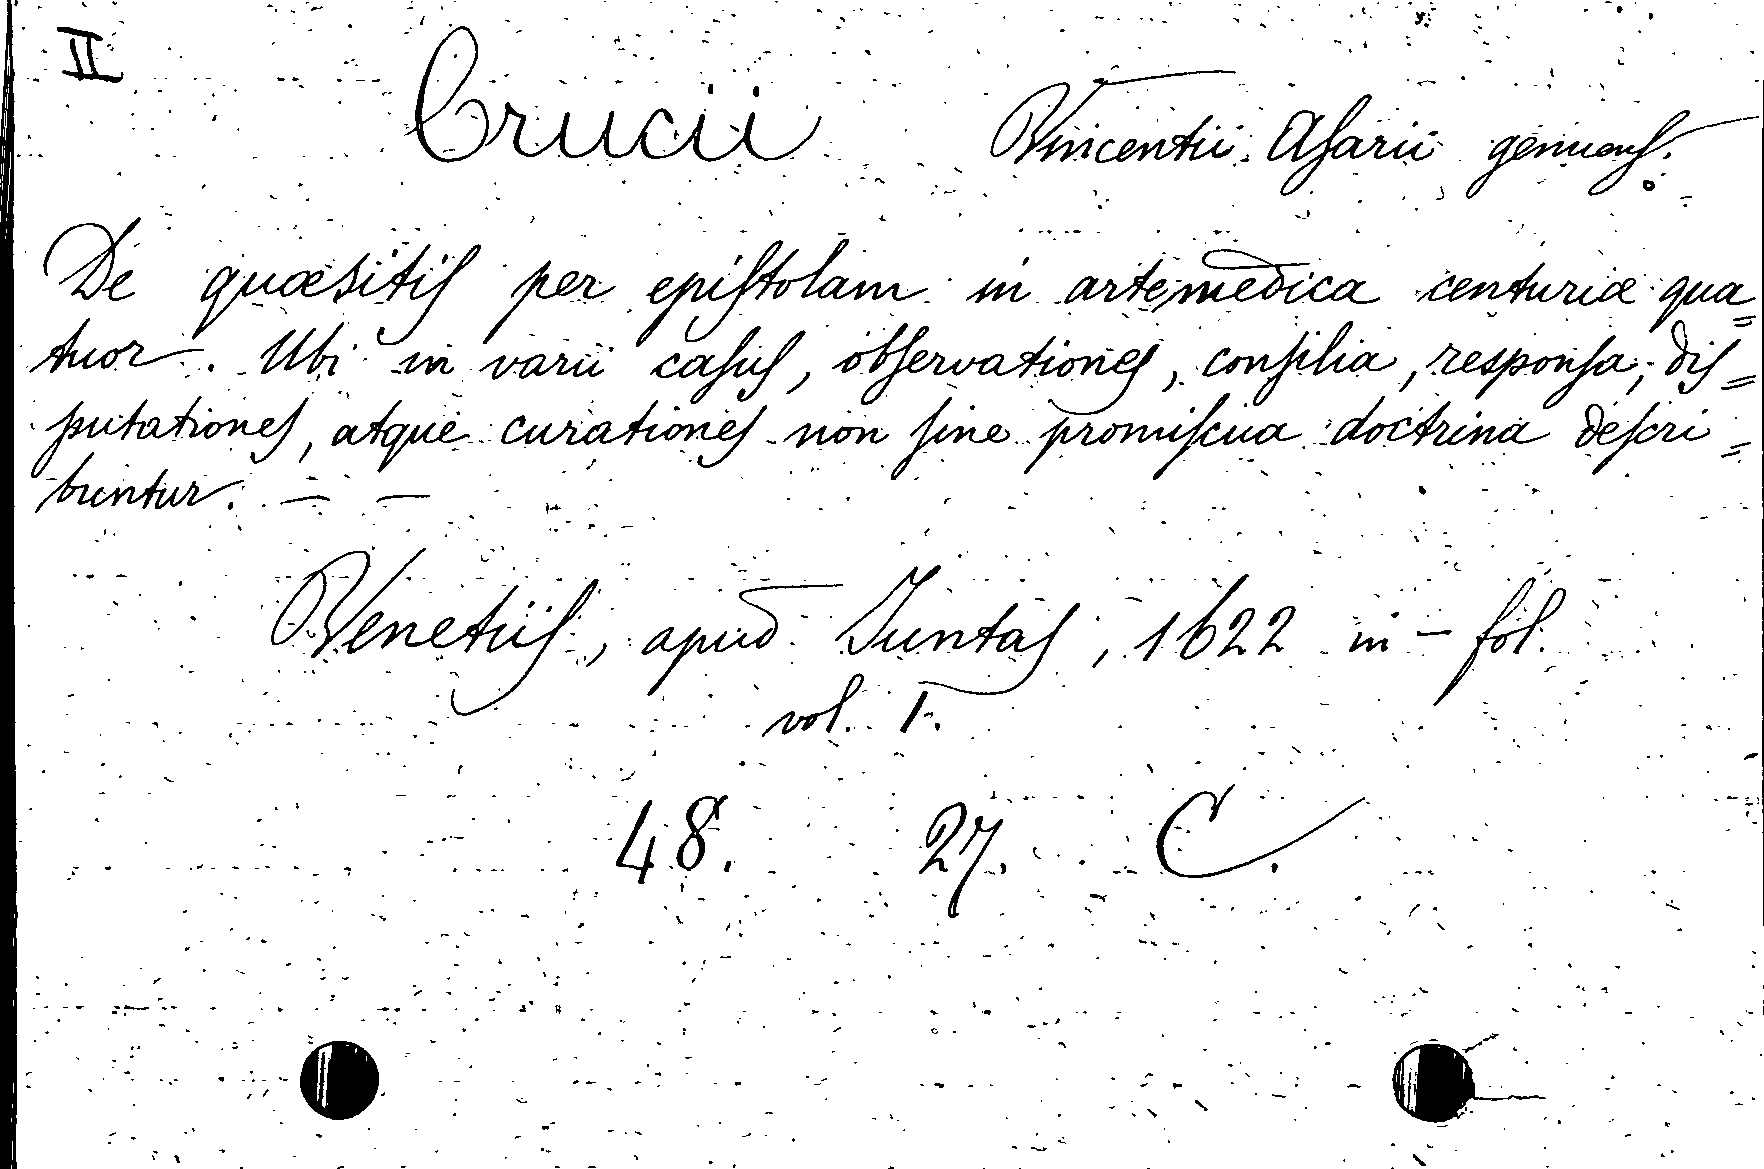 II
Crucii Vincentii Asarii genuens.
De quæsitis per epistolam in arte medica centuriæ qua=
tuor. Ubi in varii casus, observationes, consilia, responsa, dis=
putationes, atque curationes non sine promiscua doctrina descri=
buntur. — —
Venetiis, apud Juntas, 1622 in - fol.
vol. I.
48. 27. C.